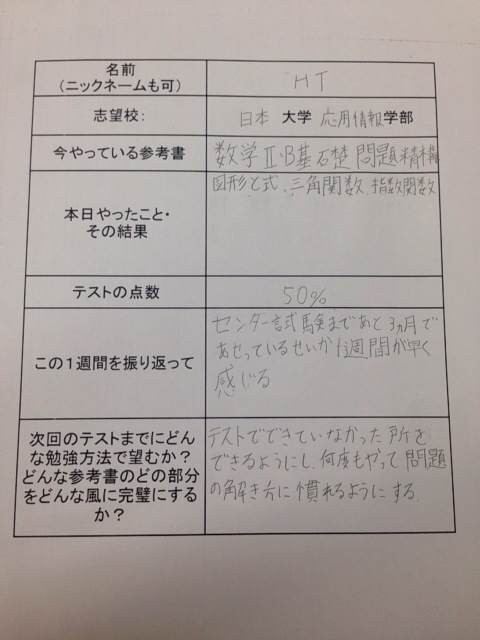 名前
（ニックネームも可）
HT
志望校：
日本 大学 応用情報学部
今やっている参考書
数学Ⅱ・B基礎問題精構
本日やったこと・
その結果
図形と式、三角関数、指数関数
テストの点数
50%
この１週間を振り返って
センター試験まであと3ヵ月で
あせっているせいか1週間が早く
感じる
次回のテストまでにどん
な勉強方法で望むか？
どんな参考書のどの部分
をどんな風に完璧にする
か？
テストでできていなかった所を
できるようにし、何度もやって問題
の解き方に慣れるようにする